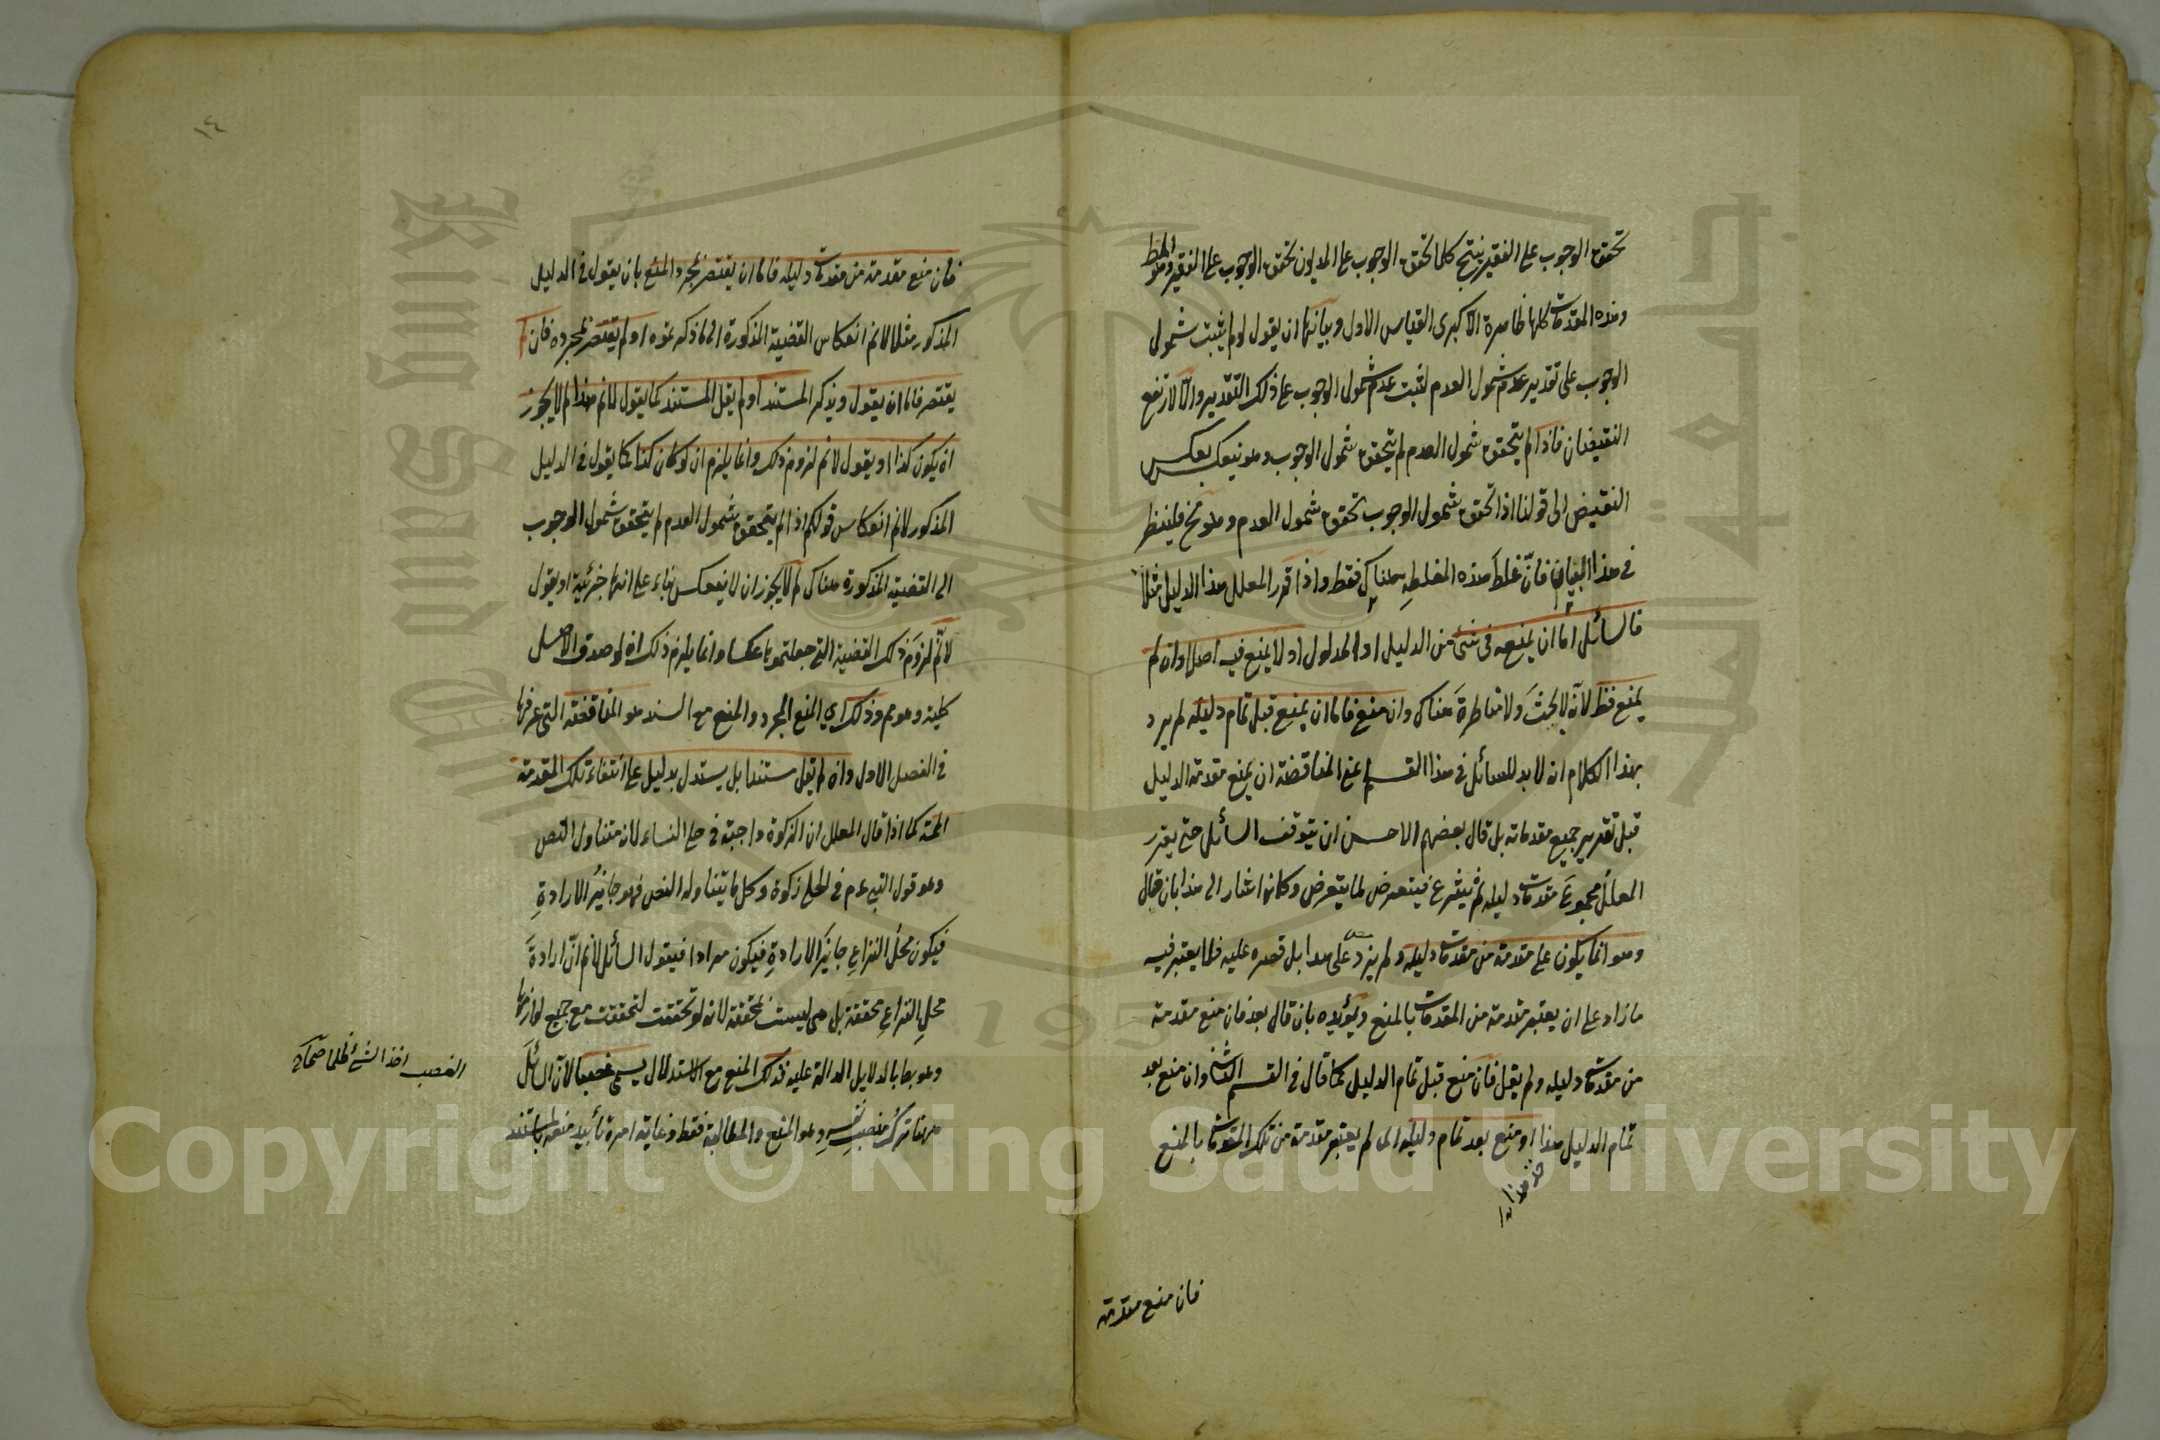 تحقق الوجوب على الفقير ينتج كلما تحقق الوجوب على المديون تحقق الوجوب على الفقير وهو المط
وهذه المقدمات كلها ظاهرة الا كبرى القياس الاول وبيانها ان يقول لو لم يثبت شمول
الوجوب على تقدير عدم شمول العدم لثبت عدم شمول الوجوب على ذلك التقدير والا لارتفع
النقيضان فاذا لم يتحقق شمول العدم لم يتحقق شمول الوجوب وهو ينعكس بعكس
النقيض الى قولنا اذا تحقق شمول الوجوب تحقق شمول العدم وهو مح فلينظر
في هذا البيان فان غلط هذه المغلطة هناك فقط واذا قرر المعلل هذا الدليل مثلا
فالسائل اما ان يمنعه في شئ من الدليل او المدلول او لا يمنع فيه اصلا وان لم
يمنع فظ لانه لا بحث ولا مناظرة هناك وان منع فاما ان يمنع قبل تمام دليله لم يرد
بهذا الكلام انه لا بد للسائل في هذا القسم اعني المناقضة ان يمنع مقدمة الدليل
قبل تقرير جميع مقدماته بل قال بعضهم الاحسن ان يتوقف السائل حتى يقرر
المعلل مجموع مقدمات دليله ثم يشرع فيتعرض لما يتعرض وكانه اشار الى هذا بان قال
وهو انما يكون على مقدمة من مقدمات دليله ولم يزد على هذا بل قصره عليه فلا يعتبر فيه
ما زاد على ان يعتبر مقدمة من المقدمات بالمنع ويؤيده بان قال بعد فان منع مقدمة
من مقدمات دليله ولم يقل فان منع قبل تمام الدليل كما قال في القسم الثاني وان منع بعد
تمام الدليل هذا او منع بعد تمام دليله اى لم يعتبر مقدمة من تلك المقدمات بالمنع
فان منع مقدمة
١٤
فان منع مقدمة من مقدمات دليله فاما ان يقتصر بمجرد المنع بان يقول في الدليل
المذكور مثلا لانم انعكاس القضية المذكورة الى ما ذكرتموه او لم يقتصر بمجرده فان لم
يقتصر فاما ان يقول ويذكر المستند او لم يقل المستند كما يقول لانم هذا لم لا يجوز
ان يكون كذا او يقول لانم لزوم ذلك وانما يلزم ان لو كان كذا كما يقول في الدليل
المذكور لانم انعكاس قولكم اذا لم يتحقق شمول العدم لم يتحقق شمول الوجوب
الى القضية المذكورة هناك لم لا يجوز ان لا ينعكس بناء على انها جزئية او يقول
لانم لزوم ذلك القضية التي جعلتموها عكسا وانما يلزم ذلك ان لو صدق الاصل
كلية وهو مم وذلك اي المنع المجرد والمنع مع السند هو المناقضة التي عرفها
في الفصل الاول وان لم يقل مستندا بل يستدل بدليل على انتفاء تلك المقدمة
الممنوعة كما اذا قال المعلل ان الزكوة واجبة في حلي النساء لانه متناول النص
وهو قول النبي عم في الحلي زكوة وكل ما يتناوله النص فهو جائز الارادة
فيكون محل النزاع جائز الارادة فيكون مرادا فيقول السائل لانم ان ارادة
محل النزاع محققة بل هي ليست بمحققة لانها لو تحققت لتحققت مع جميع لوازمها
وهو بط بالدلايل الدالة عليه فذلك المنع مع الاستدلال يسمى غصبا لان السائل
ههنا ترك منصب نفسه وهو المنع والمطالبة فقط وغاية امره تأييد منعه باستند
الغصب اخذ الشئ ظلما صحاح
Copyright © King Saud University
1957